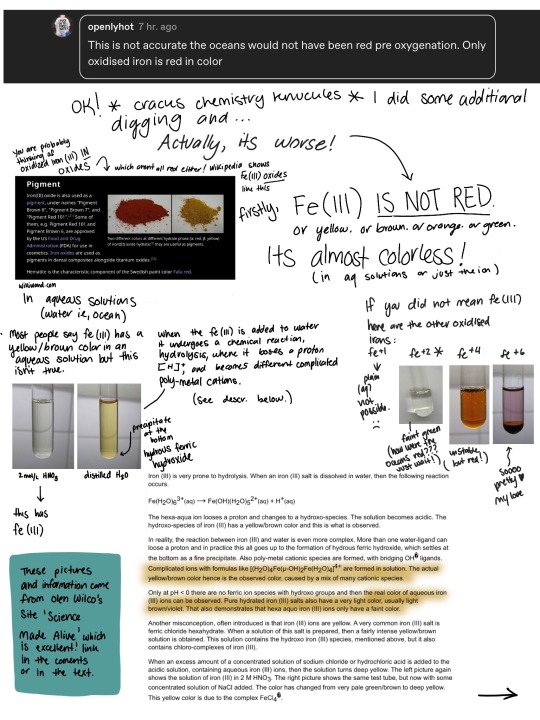 openlyhot 7 hr. ago
This is not accurate the oceans would not have been red pre oxygenation. Only
oxidised iron is red in color
OK! * cracks chemistry knuckles * I did some additional
digging and ...
Actually, its worse!
You are probably
thinking of
oxidized iron (III) IN
OXIDES
which arent all red either! Wikipedia shows
Fe(III) oxides
like this
Pigment
Iron(III) oxide is also used as a
pigment, under names "Pigment
Brown 6", "Pigment Brown 7", and
"Pigment Red 101".
Some of
them, e.g. Pigment Red 101 and
Pigment Brown 6, are approved
by the US Food and Drug
Administration (FDA) for use in
cosmetics. Iron oxides are used as
pigments in dental composites alongside titanium oxides.
Hematite is the characteristic component of the Swedish paint color Falu red.
Two different colors at different hydrate phase (α: red, β: yellow)
of iron(III) oxide hydrate; they are useful as pigments.
firstly,
Fe(III) IS NOT RED.
or yellow. or brown. or orange. or green.
Its almost colorless!
(in aq solutions or just the ion)
In aqueous solutions
(water ie, ocean)
Most people say fe(III) has a
yellow/brown color in an
aqueous solution but this
isnt true.
when the fe(III) is added to water
it undergoes a chemical reaction,
hydrolysis, where it loses a proton
[H], and becomes different complicated
poly-metal cations.
(see descr. below.)
precipitate
at the
bottom
hydrous ferric
hydroxide
2 mol/L HNO3
distilled H2O
this has
fe (III)
If you did not mean Fe(III)
here are the other oxidised
irons:
fe+1
fe+2 *
fe+4
fe+6
plain
(aq)
not
possible.
:(
faint green
(how were the
oceans red???
just wait!)
(unstable,
but red!)
soooo
pretty ♥
my love
Iron (III) is very prone to hydrolysis. When an iron (III) salt is dissolved in water, then the following reaction
occurs.
Fe(H2O)6 3+(aq) —> Fe(OH)(H2O)5 2+(aq) + H+(aq)
The hexa-aqua ion looses a proton and changes to a hydroxo-species. The solution becomes acidic. The
hydroxo-species of iron (III) has a yellow/brown color and this is what is observed.
In reality, the reaction between iron (III) and water is even more complex. More than one water-ligand can
loose a proton and in practice this all goes up to the formation of hydrous ferric hydroxide, which settles at
the bottom as a fine precipitate. Also poly-metal cationic species are formed, with bridging OH ligands.
Complicated ions with formulas like [(H2O)4Fe(μ-OH)2Fe(H2O)4]4+ are formed in solution. The actual
yellow/brown color hence is the observed color, caused by a mix of many cationic species.
Only at pH < 0 there are no ferric ion species with hydroxo groups and then the real color of aqueous iron
(III) ions can be observed. Pure hydrated iron (III) salts also have a very light color, usually light
brown/violet. That also demonstrates that hexa aquo iron (III) ions only have a faint color.
Another misconception, often introduced is that iron (III) ions are yellow. A very common iron (III) salt is
ferric chloride hexahydrate. When a solution of this salt is prepared, then a fairly intense yellow/brown
solution is obtained. This solution contains the hydroxo iron (III) species, mentioned above, but it also
contains chloro-complexes of iron (III).
When an excess amount of a concentrated solution of sodium chloride or hydrochloric acid is added to the
acidic solution, containing aqueous iron (III) ions, then the solution turns deep yellow. The left picture again
shows the solution of iron (III) in 2 M HNO3. The right picture shows the same test tube, but now with some
concentrated solution of NaCl added. The color has changed from very pale green/brown to deep yellow.
This yellow color is due to the complex FeCl4
These pictures
and information came
from Olen Wilco's
Site 'Science
Made Alive' which
is excellent! link
in the coments
or in the text.